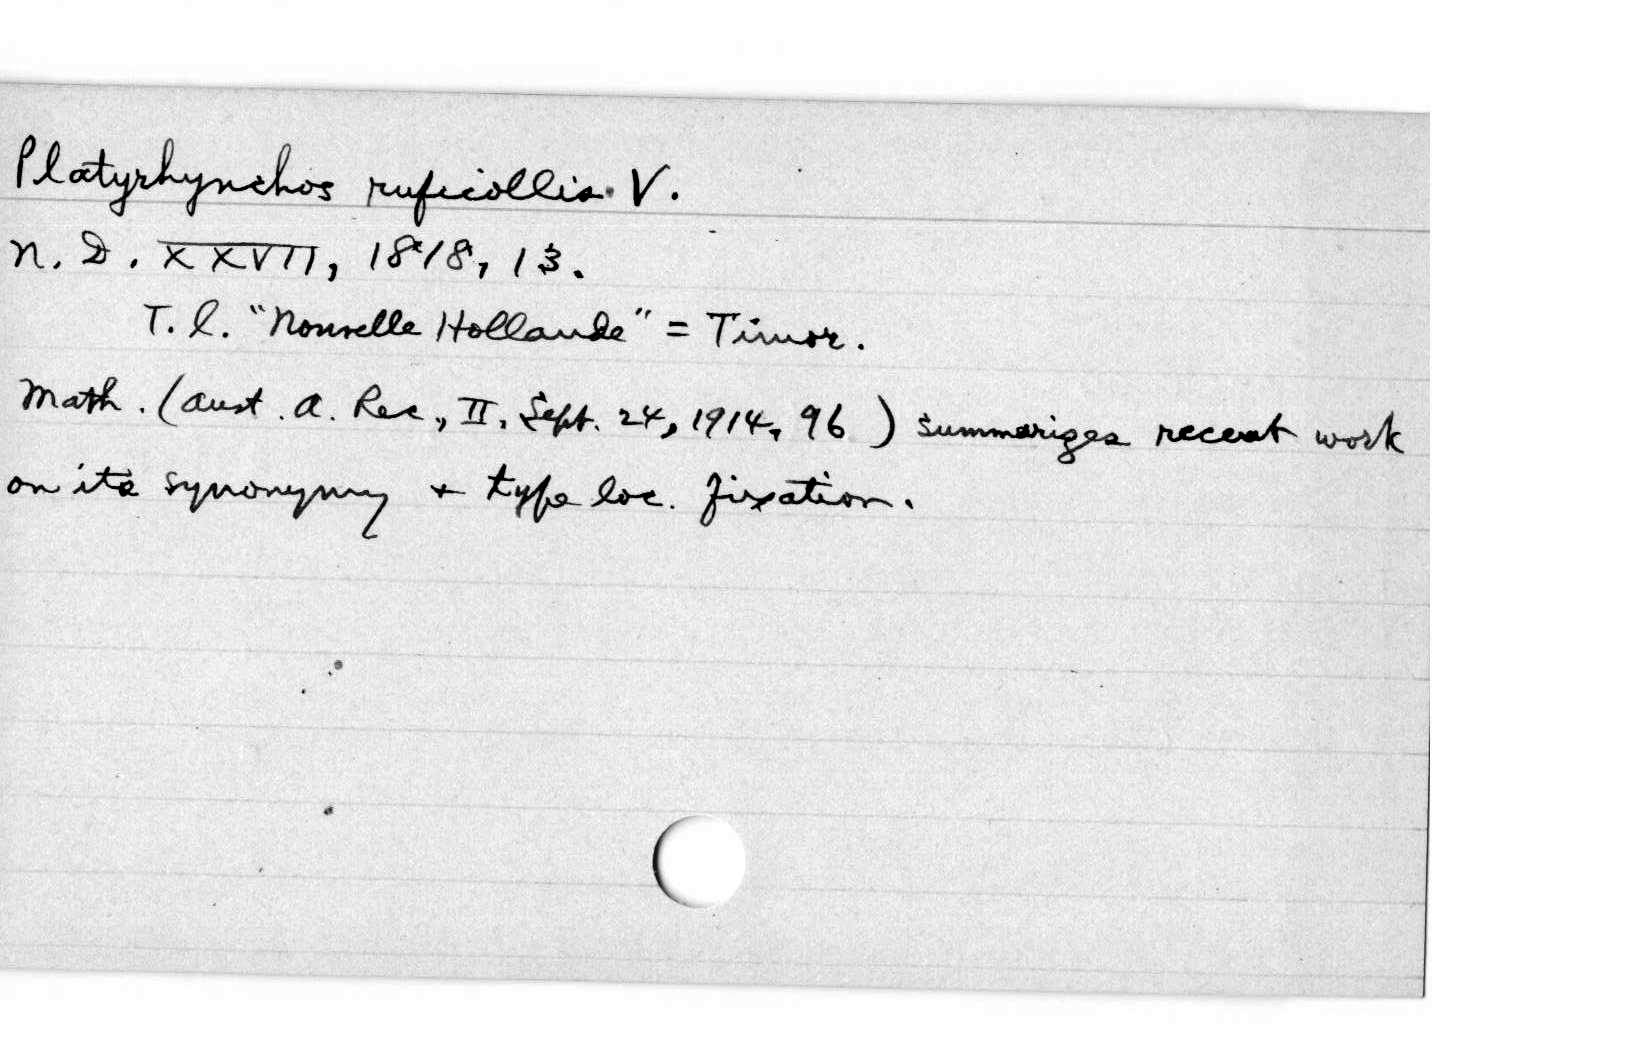 Platyrhynchos ruficollis V.
N. D. XXVII, 1818, 13.
T. l. "Nouvelle Hollande" = Timor.
Math. (Aust. A. Rec., II, Sept. 24, 1914, 96) summarizes recent work
on its synonymy + type loc. fixation.